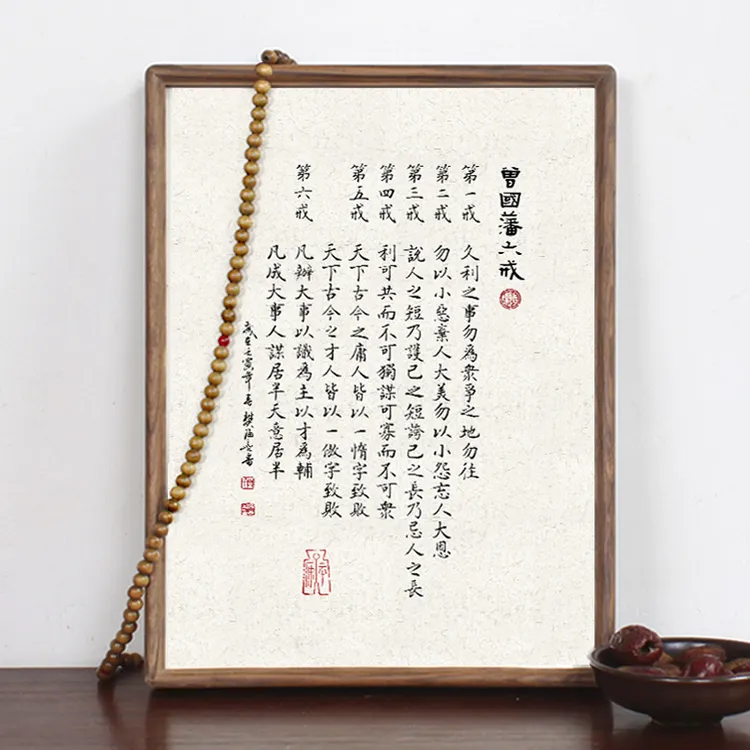 曾國藩六戒
第一戒 久利之事勿為衆爭之地勿往
第二戒 勿以小惡棄人大美勿以小怨忘人大恩
第三戒 說人之短乃護己之短誇己之長乃忌人之長
第四戒 利可共而不可獨謀可寡而不可衆
第五戒 天下古今之庸人皆以一惰字致敗
天下古今之才人皆以一傲字致敗
第六戒 凡辦大事以識為主以才為輔
凡成大事人謀居半天意居半
歲在壬寅年春樊